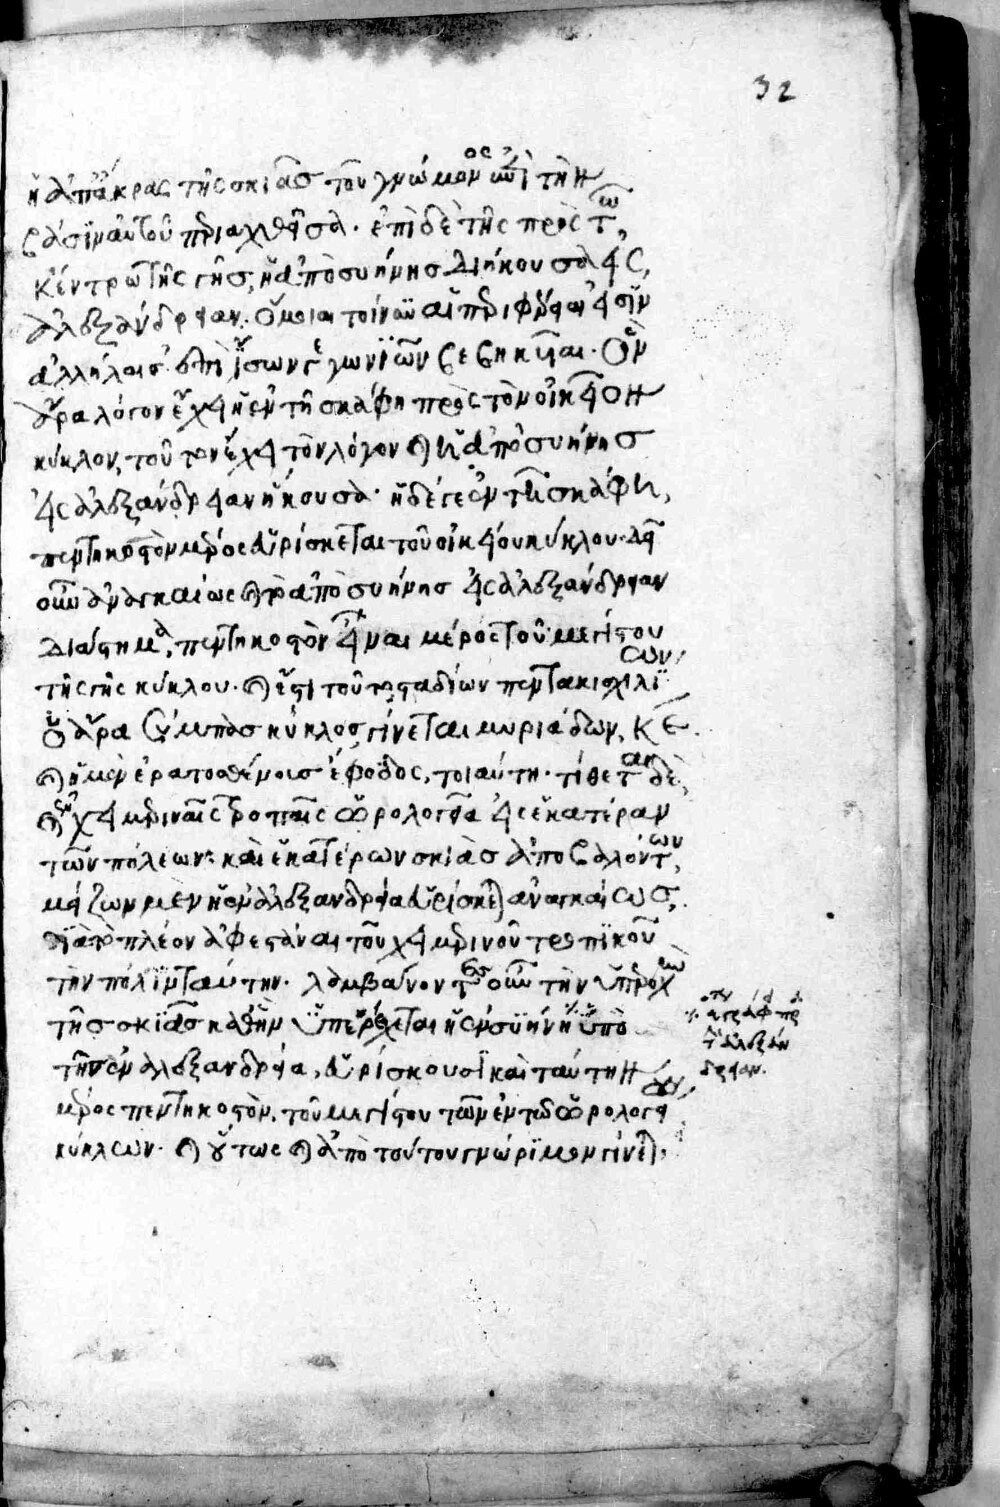 32
ἡ ἀπ' ἄκρας τῆς σκιᾶς τοῦ γνώμονος ἐπὶ τὴν
βάσιν αὐτοῦ περιαχθεῖσα. ἐπὶ δὲ τῆς πρὸς τῷ
κέντρῳ τῆς γῆς, ἡ ἀπὸ συήνης διήκουσα εἰς
ἀλεξάνδρειαν. ὅμοιαι τοίνυν αἱ περιφέρειαί εἰσιν
ἀλλήλαις· ἐπὶ ἴσων γε γωνιῶν βεβηκυῖαι. ὃν
ἄρα λόγον ἔχει ἡ ἐν τῇ σκάφῃ πρὸς τὸν οἰκεῖον
κύκλον, τοῦτον ἔχει τὸν λόγον καὶ ἡ ἀπὸ συήνης
εἰς ἀλεξάνδρειαν ἥκουσα. ἡ δέ γε ἐν τῇ σκάφῃ,
πεντηκοστὸν μέρος εὑρίσκεται τοῦ οἰκείου κύκλου. δεῖ
οὖν ἀναγκαίως καὶ τὸ ἀπὸ συήνης εἰς ἀλεξάνδρειαν
διάστημα, πεντηκοστὸν εἶναι μέρος τοῦ μεγίστου
τῆς γῆς κύκλου. καὶ ἔστι τοῦτο σταδίων πεντακισχιλίων
ὁ ἄρα σύμπας κύκλος γίνεται μυριάδων, κε.
καὶ ἡ μὲν ἐρατοσθένους ἔφοδος, τοιαύτη. τίθεται δὲ
καὶ χειμεριναῖς τροπαῖς ὡρολογεῖα εἰς ἑκατέραν
τῶν πόλεων· καὶ ἑκατέρων σκιὰς ἀποβαλόντων,
μείζων μὲν ἡ ἐν ἀλεξανδρείᾳ εὑρίσκεται ἀναγκαίως,
διὰ τὸ πλέον ἀφεστάναι τοῦ χειμερινοῦ τροπικοῦ
τὴν πόλιν ταύτην. λαμβάνοντες οὖν τὴν ὑπεροχὴν
τῆς σκιᾶς καθ' ἣν ὑπερέχεται ἡ ἐν συήνῃ ὑπὸ
τῆς ἐν ἀλεξανδρείᾳ, εὑρίσκουσι καὶ ταύτην
μέρος πεντηκοστὸν, τοῦ μεγίστου τῶν ἐν τῷ ὡρολογείῳ
κύκλων. καὶ οὕτως καὶ ἀπὸ τούτου γνώριμον γίνεται,
ἀλεξάν
δρειαν.